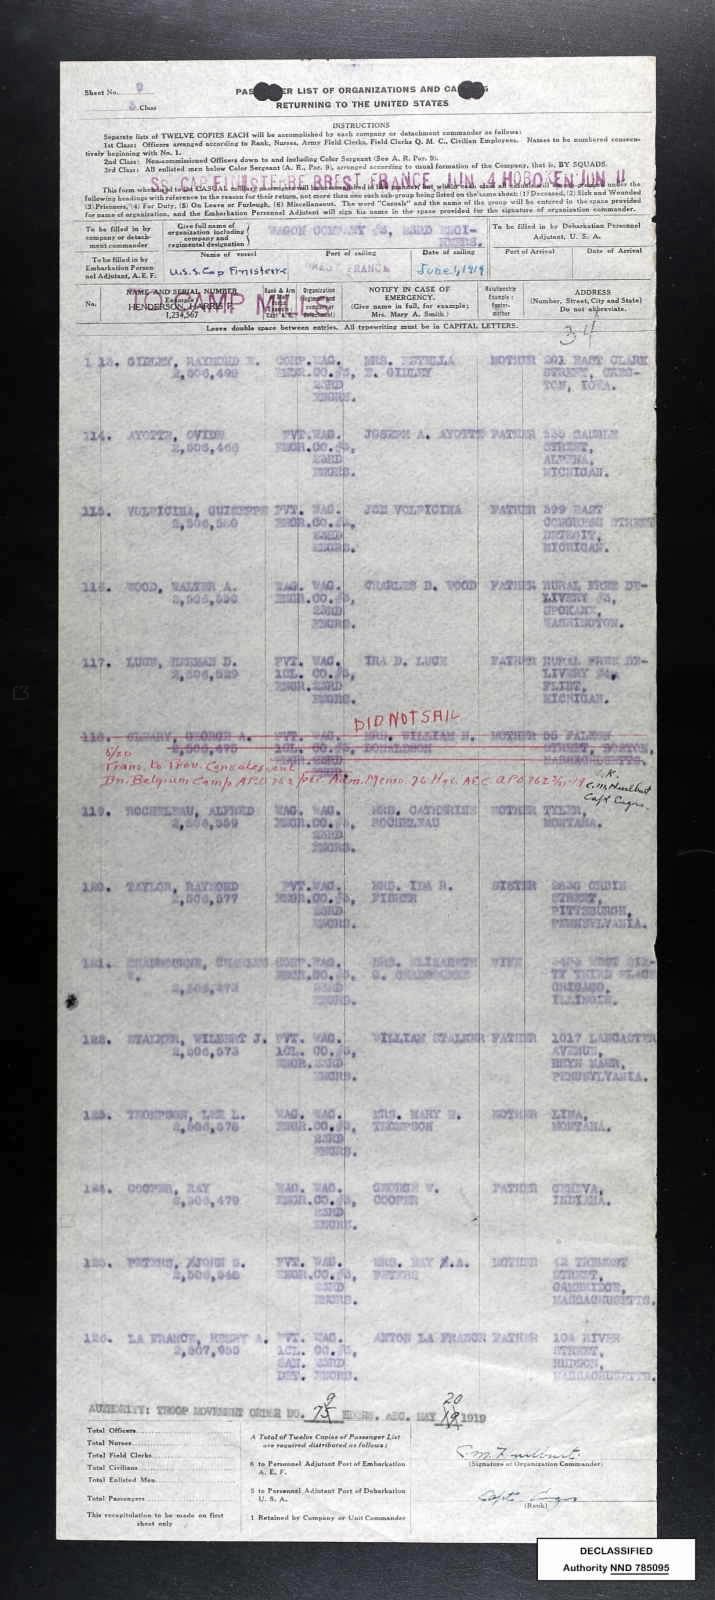 Sheet No. 9
3 Class
PAS ER LIST OF ORGANIZATIONS AND CA S
RETURNING TO THE UNITED STATES
INSTRUCTIONS
Separate lists of TWELVE COPIES EACH will be accomplished by each company or detachment commander as follows:
1st Class: Officers arranged according to Rank, Nurses, Army Field Clerks, Field Clerks Q. M. C., Civilian Employees. Names to be numbered consecu-
tively beginning with No. 1.
2nd Class: Non-commissioned Officers down to and including Color Sergeant (See A. R. Par. 9).
3rd Class: All enlisted men below Color Sergeant (A. R., Par. 9), arranged according to usual formation of the Company, that is, BY SQUADS.
SS. CAP FINISTERRE BREST FRANCE JUN 4 HOBOKEN JUN 11
following headings with reference to the reason for their return, not more than one such sub-group being listed on the same sheet: (1) Deceased, (2) Sick and Wounded
(3) Prisoners, (4) For Duty, (5) On Leave or Furlough, (6) Miscellaneous. The word "Casuals" and the name of the group will be entered in the space provided
for name of organization, and the Embarkation Personnel Adjutant will sign his name in the space provided for the signature of organization commander.
To be filled in by
company or detach-
ment commander
Give full name of
organization including
company and
regimental designation
WAGON COMPANY #3, 23RD ENGI-
NEERS.
To be filled in by Debarkation Personnel
Adjutant, U. S. A.
To be filled in by
Embarkation Person-
nel Adjutant, A. E. F.
Name of vessel
U.S.S. Cap Finisterre
Port of sailing
BREST FRANCE
Date of sailing
June 4, 1919
Port of Arrival
Date of Arrival
No.
NAME AND SERIAL NUMBER
Example:
HENDERSON, HARRIS P.
1,234,567
TO CAMP MILLS
NOTIFY IN CASE OF
EMERGENCY.
(Give name in full, for example;
Mrs. Mary A. Smith.)
Relationship
Example:
mother
ADDRESS
(Number, Street, City and State)
Do not abbreviate.
34
Leave double space between entries. All typewriting must be in CAPITAL LETTERS.
113. GIDLEY, RAYMOND E. CORP. WAG. MRS. ESTELLA MOTHER 201 EAST CLARK
ENGR. CO. #3, E. GIDLEY STREET, CRES-
23RD TON, IOWA.
ENGRS.
114. AYOTTE, OVIDE PVT. WAG. JOSEPH A. AYOTTE FATHER
ENGR. CO. #3, STREET,
23RD ALPENA,
ENGRS. MICHIGAN.
115. VOLPICINA, GUISEPPE PVT. WAG. JOE VOLPICINA FATHER 399 EAST
ENGR. CO. #3, CONGRESS STREET
23RD DETROIT,
ENGRS. MICHIGAN.
116. WOOD, WALTER A. WAG. WAG. CHARLES D. WOOD FATHER RURAL FREE DE-
ENGR. CO. #3, LIVERY #3,
23RD SPOKANE,
ENGRS. WASHINGTON.
117. LUCE, HERMAN D. PVT. WAG. IRA D. LUCE FATHER RURAL FREE DE-
2,506,529 1CL. CO. #3, LIVERY #4,
ENGR. 23RD FLINT,
ENGRS. MICHIGAN.
DID NOT SAIL
118. CLEARY, GEORGE A. PVT. WAG. MRS. WILLIAM H. MOTHER
2,506,475 1CL. CO. #3, DONALDSON STREET, BOSTON,
ENGR. 23RD MASSACHUSETTS.
5/20
Trans. to Prov. Convalescent
Bn. Belgium Camp APO 762 per Adm. Memo. 76 Hq. AEC APO 762
O.K.
C.M. Hurlbut
Capt Engrs.
119. ROCHELEAU, ALFRED WAG. WAG. MRS. CATHERINE MOTHER TYLER,
2,506,559 ENGR. CO. #3, ROCHELEAU MONTANA.
23RD
ENGRS.
120. TAYLOR, RAYMOND PVT. WAG. MRS. IDA R. SISTER
2,506,577 ENGR. CO. #3, FISHER STREET,
23RD PITTSBURGH,
ENGRS. PENNSYLVANIA.
121. CHADBOURNE, CHARLES CORP. WAG. MRS. ELIZABETH WIFE WEST SIX-
ENGR. CO. #3, CHADBOURNE TY THIRD PLACE
23RD CHICAGO,
ENGRS. ILLINOIS.
122. STALKER, WILBERT J. PVT. WAG. WILLIAM STALKER FATHER 1017 LANCASTER
2,506,573 1CL. CO. #3, AVENUE,
ENGR. 23RD BRYN MAWR,
ENGRS. PENNSYLVANIA.
123. THOMPSON, LEE L. WAG. WAG. MRS. MARY E. MOTHER LIMA,
ENGR. CO. #3, THOMPSON MONTANA.
23RD
ENGRS.
124. COOPER, RAY WAG. WAG. GEORGE W. FATHER GENEVA,
2,506,479 ENGR. CO. #3, COOPER INDIANA.
23RD
ENGRS.
125. PETERS, JOHN S. PVT. WAG. MRS. MAY A. MOTHER 42 TREMONT
ENGR. CO. #3, PETERS STREET,
23RD CAMBRIDGE,
ENGRS. MASSACHUSETTS.
126. LA FRANCE, HENRY A. PVT. WAG. ANTON LA FRANCE FATHER 104 RIVER
1CL. CO. #3, STREET,
SAN. 23RD HUDSON,
DET. ENGRS. MASSACHUSETTS.
9 20
AUTHORITY: TROOP MOVEMENT ORDER NO. 75 HDQRS. AEC. MAY 19 1919
Total Officers
Total Nurses
Total Field Clerks
Total Civilians
Total Enlisted Men
Total Passengers
This recapitulation to be made on first
sheet only
A Total of Twelve Copies of Passenger List
are required distributed as follows:
6 to Personnel Adjutant Port of Embarkation
A. E. F.
5 to Personnel Adjutant Port of Debarkation
U. S. A.
1 Retained by Company or Unit Commander
C.M. Hurlbut
(Signature of Organization Commander)
Capt. Engrs
(Rank)
DECLASSIFIED
Authority NND 785095